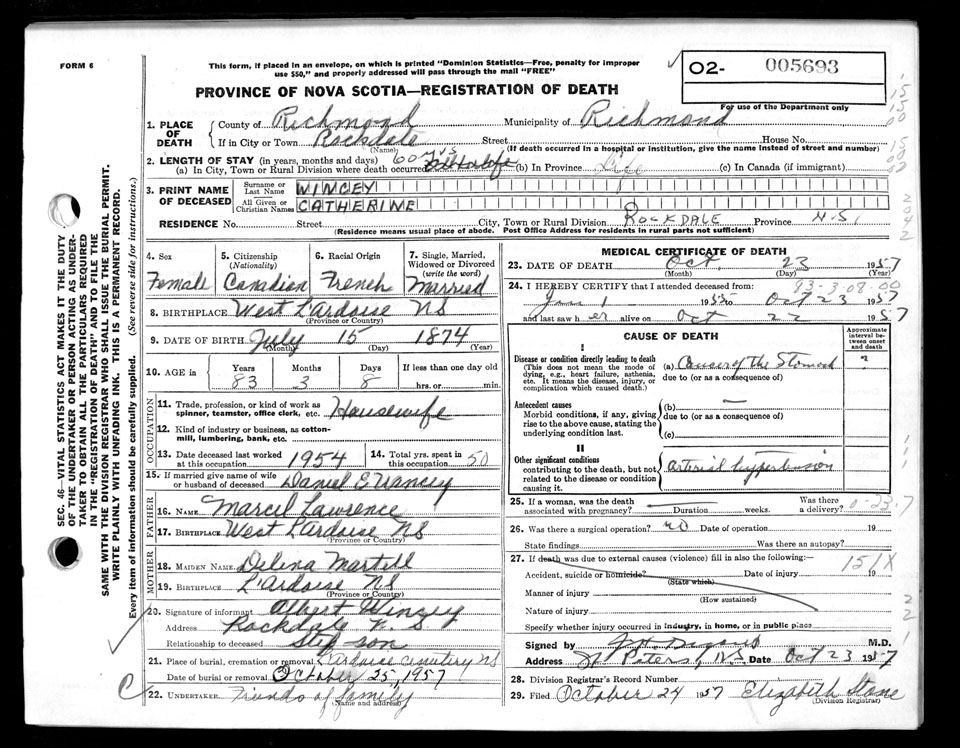 FORM 6
This form, if placed in an envelope, on which is printed "Dominion Statistics—Free, penalty for improper
use $50," and properly addressed will pass through the mail "FREE"
O2- 005693
For use of the Department only
PROVINCE OF NOVA SCOTIA—REGISTRATION OF DEATH
1. PLACE OF DEATH
County of Richmond Municipality of Richmond
If in City or Town Rockdale Street House No.
(Name) (If death occurred in a hospital or institution, give the name instead of street and number)
2. LENGTH OF STAY (in years, months and days) 60 yrs
(a) In City, Town or Rural Division where death occurred (b) In Province Life (c) In Canada (if immigrant)
3. PRINT NAME OF DECEASED
Surname or Last Name WINCEY
All Given or Christian Names CATHERINE
RESIDENCE No. Street City, Town or Rural Division ROCKDALE Province N.S.
(Residence means usual place of abode. Post Office Address for residents in rural parts not sufficient)
4. Sex Female
5. Citizenship (Nationality) Canadian
6. Racial Origin French
7. Single, Married, Widowed or Divorced (write the word) Married
8. BIRTHPLACE West L'Ardoise NS
(Province or Country)
9. DATE OF BIRTH July 15 1874
(Month) (Day) (Year)
10. AGE in Years 83 Months 3 Days 8 If less than one day old hrs. or min.
OCCUPATION
11. Trade, profession, or kind of work as spinner, teamster, office clerk, etc. Housewife
12. Kind of industry or business, as cotton-mill, lumbering, bank, etc.
13. Date deceased last worked at this occupation 1954
14. Total yrs. spent in this occupation 50
15. If married give name of wife or husband of deceased Daniel E Wincey
FATHER
16. NAME Marcel Lawrence
17. BIRTHPLACE West L'Ardoise NS
(Province or Country)
MOTHER
18. MAIDEN NAME Delina Martell
19. BIRTHPLACE L'Ardoise NS
(Province or Country)
20. Signature of informant Albert Wincey
Address Rockdale N S
Relationship to deceased Step son
21. Place of burial, cremation or removal L'Ardoise Cemetery NS
Date of burial or removal October 25, 1957
22. UNDERTAKER Friends of family
(Name and address)
MEDICAL CERTIFICATE OF DEATH
23. DATE OF DEATH Oct. 23 1957
(Month) (Day) (Year)
93-3-08-00
24. I HEREBY CERTIFY that I attended deceased from:
1 195 to Oct 23 1957
and last saw her alive on Oct 22 1957
CAUSE OF DEATH
Approximate interval between onset and death
I
Disease or condition directly leading to death
(This does not mean the mode of dying, e.g., heart failure, asthenia, etc. It means the disease, injury, or complication which caused death.)
(a) Cancer of the Stomach
due to (or as a consequence of)
Antecedent causes
Morbid conditions, if any, giving rise to the above cause, stating the underlying condition last.
(b) —
due to (or as a consequence of)
(c)
II
Other significant conditions
contributing to the death, but not related to the disease or condition causing it.
arterial hypertension
25. If a woman, was the death associated with pregnancy? Duration weeks. Was there a delivery?
26. Was there a surgical operation? no Date of operation 19
State findings Was there an autopsy?
27. If death was due to external causes (violence) fill in also the following: 151X
Accident, suicide or homicide? Date of injury 19
(State which)
Manner of injury
(How sustained)
Nature of injury
Specify whether injury occurred in industry, in home, or in public place
Signed by M.D.
Address St Peters, N.S. Date Oct 23 1957
28. Division Registrar's Record Number
29. Filed October 24 1957 Elizabeth Stone
(Division Registrar)
SEC. 46—VITAL STATISTICS ACT MAKES IT THE DUTY
OF THE UNDERTAKER OR PERSON ACTING AS UNDER-
TAKER TO OBTAIN ALL THE PARTICULARS REQUIRED
IN THE "REGISTRATION OF DEATH" AND TO FILE THE
SAME WITH THE DIVISION REGISTRAR WHO SHALL ISSUE THE BURIAL PERMIT.
WRITE PLAINLY WITH UNFADING INK. THIS IS A PERMANENT RECORD.
Every item of information should be carefully supplied. (See reverse side for instructions.)